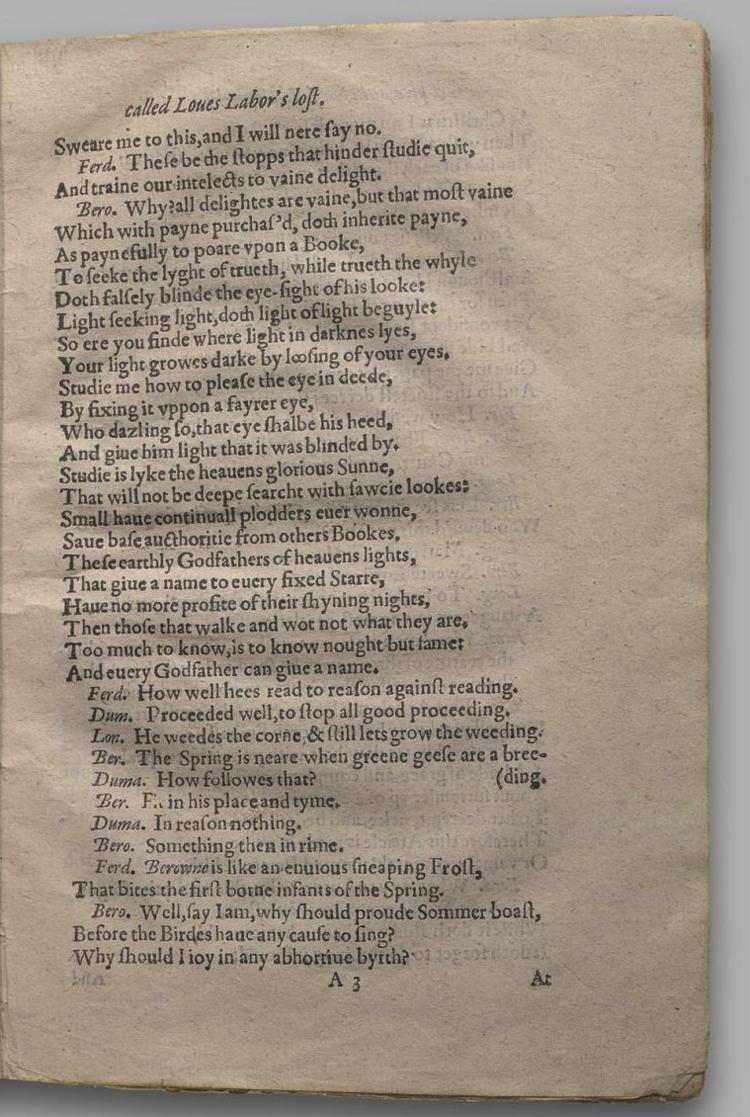 called Loues Labor's lost.
Sweare me to this,and I will nere ſay no.
Ferd. Theſe be the ſtopps that hinder ſtudie quit,
And traine our intelects to vaine delight.
Bero. Why?all delightes are vaine,but that moſt vaine
Which with payne purchaſ'd, doth inherite payne,
As paynefully to poare vpon a Booke,
To ſeeke the lyght of trueth, while trueth the whyle
Doth falſely blinde the eye-ſight of his looke:
Light ſeeking light,doth light of light beguyle:
So ere you finde where light in darknes lyes,
Your light growes darke by looſing of your eyes.
Studie me how to pleaſe the eye in deede,
By fixing it vppon a fayrer eye,
Who dazling ſo,that eye ſhalbe his heed,
And giue him light that it was blinded by.
Studie is lyke the heauens glorious Sunne,
That will not be deepe ſearcht with ſawcie lookes:
Small haue continuall plodders euer wonne,
Saue baſe aucthoritie from others Bookes.
Theſe earthly Godfathers of heauens lights,
That giue a name to euery fixed Starre,
Haue no more profite of their ſhyning nights,
Then thoſe that walke and wot not what they are.
Too much to know,is to know nought but fame:
And euery Godfather can giue a name.
Ferd. How well hees read to reaſon againſt reading.
Dum. Proceeded well,to ſtop all good proceeding.
Lon. He weedes the corne,& ſtill lets grow the weeding.
Ber. The Spring is neare when greene geeſe are a bree-
Duma. How followes that? (ding.
Ber. Fit in his place and tyme.
Duma. In reaſon nothing.
Bero. Something then in rime.
Ferd. Berowne is like an enuious ſneaping Froſt,
That bites the firſt borne infants of the Spring.
Bero. Well,ſay I am,why ſhould proude Sommer boaſt,
Before the Birdes haue any cauſe to ſing?
Why ſhould I ioy in any abhortiue byrth?
A 3 At